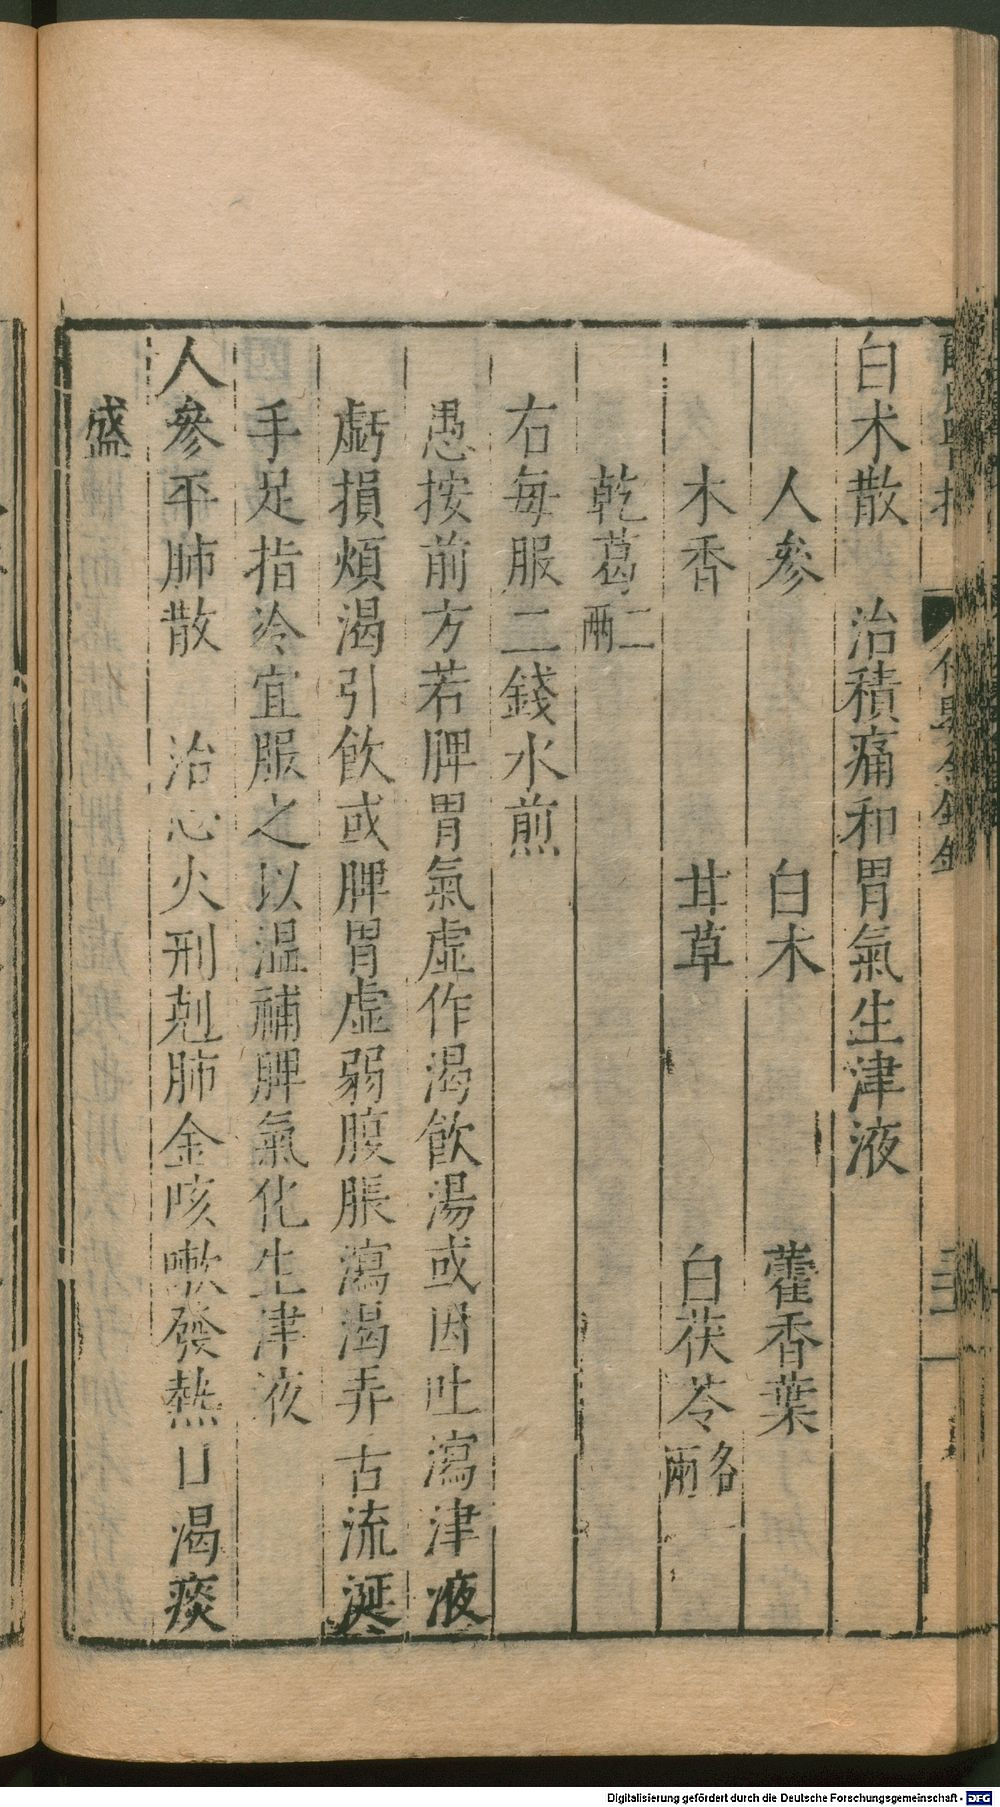 白朮散　治積痛和胃氣生津液
人參　白朮　藿香葉
木香　甘草　白茯苓各兩
乾葛二兩
右每服二錢水煎
愚按前方若脾胃氣虛作渴飲湯或因吐瀉津液
虧損煩渴引飲或脾胃虛弱腹脹瀉渴弄古流涎
手足指冷宜服之以溫補脾氣化生津液
人參平肺散　治心火刑剋肺金咳嗽發熱口渴痰
盛
Digitalisierung gefördert durch die Deutsche Forschungsgemeinschaft - DFG